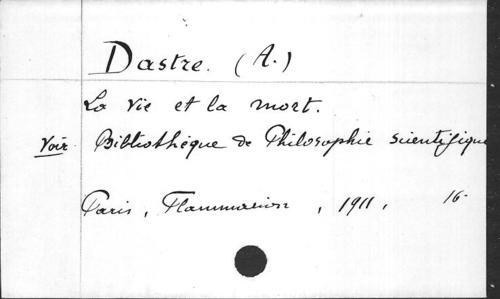 Dastre. (A.)
La Vie et la mort.
Voir Bibliothèque de Philosophie scientifique
Paris, Flammarion, 1911, 16-